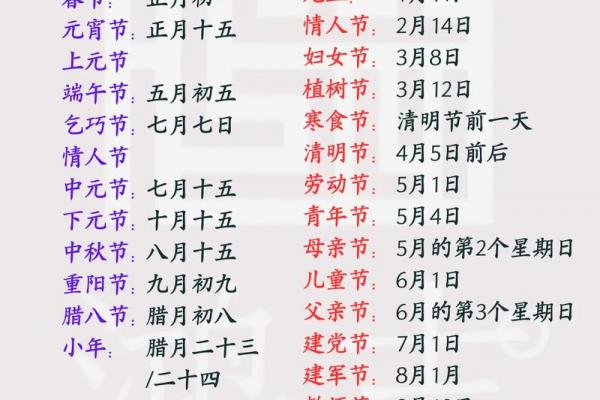 春节: 正月初
元宵节: 正月十五
上元节
端午节: 五月初五
乞巧节: 七月七日
情人节
中元节: 七月十五
下元节: 十月十五
中秋节: 八月十五
重阳节: 九月初九
腊八节: 腊月初八
小年: 腊月二十三
/二十四
情人节: 2月14日
妇女节: 3月8日
植树节: 3月12日
寒食节: 清明节前一天
清明节: 4月5日前后
劳动节: 5月1日
青年节: 5月4日
母亲节: 5月的第2个星期日
儿童节: 6月1日
父亲节: 6月的第3个星期日
建党节: 7月1日
建军节: 8月1月